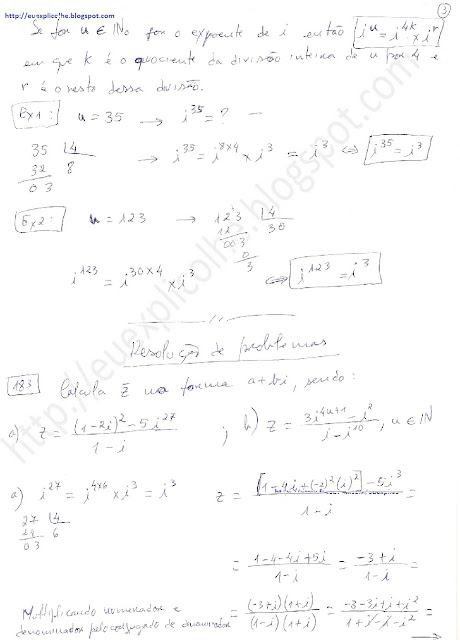 http://euexplicolhe.blogspot.com
3
Se for u ∈ IN₀ for o expoente de i então i^u = i^4k × i^r
em que k é o quociente da divisão inteira de u por 4 e
r é o resto dessa divisão.
Ex1: u = 35 → i^35 = ? —
35 |4
32 8
03
→ i^35 = i^8×4 × i^3 = i^3 ⇔ i^35 = i^3
Ex2: u = 123 → 123 |4
12 30
003
0
3
i^123 = i^30×4 × i^3 ⇔ i^123 = i^3
Resolução de problemas
183 Calcula z̄ na forma a+bi, sendo:
a) z = (1-2i)^2 - 5i^27 / 1-i ; b) z = 3i^4u+1 - i^2 / i - i^10, u ∈ IN
a) i^27 = i^4×6 × i^3 = i^3 z = [1-4i+(-2)^2(i)^2] - 5i^3 / 1-i
27 |4
24 6
03
= 1-4-4i+5i / 1-i = -3+i / 1-i =
Multiplicando numerador e
denominador pelo conjugado de denominador
= (-3+i)(1+i) / (1-i)(1+i) = -3-3i+i+i^2 / 1+i-i-i^2 =
→
http://euexplicolhe.blogspot.com